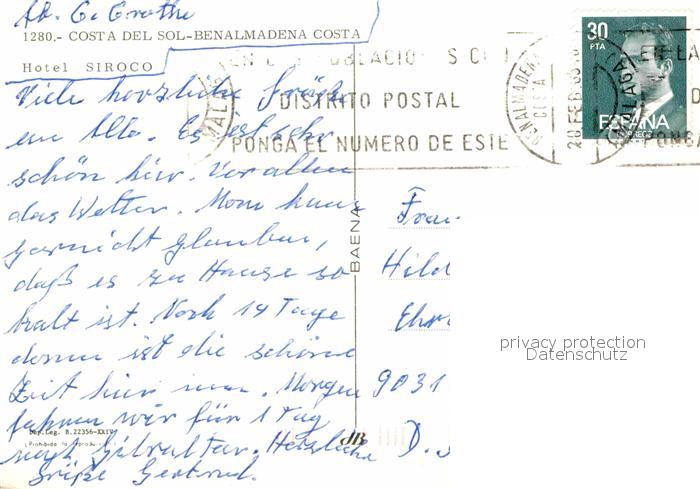 1280.- COSTA DEL SOL-BENALMADENA COSTA
Hotel SIROCO
Viele herzliche Grüße
an Alle. Es ist sehr
schön hier. Vor allem
das Wetter. Man kann
garnicht glauben,
daß es zu Hause so
kalt ist. Noch 14 Tage
dann ist die schöne
Zeit hier um. Morgen
fahren wir für 1 Tag
nach Gibraltar. Herzliche
Grüße Gertrud.
Dep. Leg. B. 22356-XXIV
(Prohibida la reproducción)
BAENA
DISTRITO POSTAL
PONGA EL NUMERO DE ESTE
BENALMADENA
COSTA
MALAGA
30
PTA
ESPAÑA
CORREOS
DE LA
D
PONGA
Frau
Hild
Ehr
9031
D.
privacy protection
Datenschutz